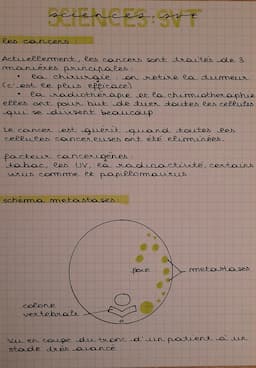 SCIENCES-SVT
les cancers
Actuellement, les cancers sont traités de 3
manières principales:
• la chirurgie: on retire la tumeur
(c'est le plus efficace)
• la radiothérapie et la chimiothérapie
elles ont pour but de tuer toutes les cellules
qui se divisent beaucoup
Le cancer est guérit quand toutes les
cellules cancereuses ont été éliminées.
facteur cancérigènes:
tabac, les UV, la radioactivité, certains
virus comme le papillomavirus
schéma metastases
foie
metastases
colone
vertebrale
Vu en coupe du tronc d'un patient à un
stade très avancé